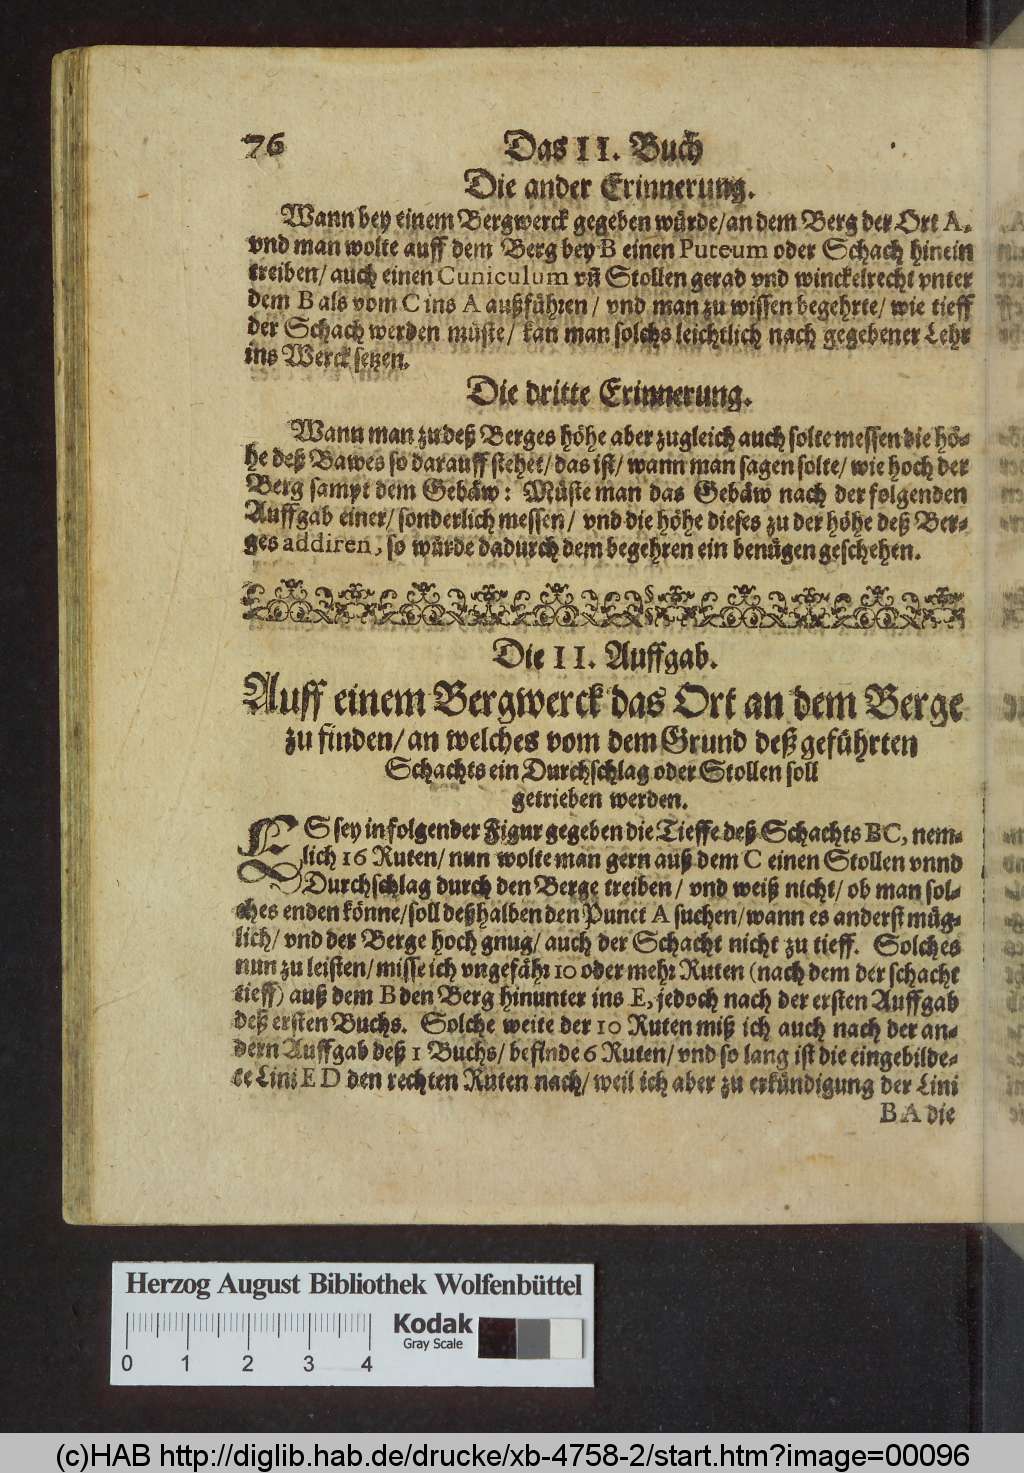 76
Das II. Buch
Die ander Erinnerung.
Wann bey einem Bergwerck gegeben würde/an dem Berg der Ort A,
vnd man wolte auff dem Berg bey B einen Puteum oder Schach hinein
treiben/ auch einen Cuniculum vñ Stollen gerad vnd winckelrecht vnter
dem B als vom C ins A außführen / vnd man zu wissen begehrte/ wie tieff
der Schach werden müste/ kan man solchs leichtlich nach gegebener Lehr
ins Werck setzen.
Die dritte Erinnerung.
Wann man zu deß Berges höhe aber zugleich auch solte messen die hö-
he deß Bawes so darauff stehet/ das ist/ wann man sagen solte/ wie hoch der
Berg sampt dem Gebäw: Müste man das Gebäw nach der folgenden
Auffgab einer/ sonderlich messen/ vnd die höhe dieses zu der höhe deß Ber-
ges addiren, so würde dadurch dem begehren ein benügen geschehen.
Die II. Auffgab.
Auff einem Bergwerck das Ort an dem Berge
zu finden/ an welches vom dem Grund deß geführten
Schachts ein Durchschlag oder Stollen soll
getrieben werden.
ES sey in folgender Figur gegeben die Tieffe deß Schachts BC, nem-
lich 16 Ruten/ nun wolte man gern auß dem C einen Stollen vnnd
Durchschlag durch den Berge treiben / vnd weiß nicht/ ob man sol-
ches enden könne/ soll deßhalben den Punct A suchen/ wann es anderst müg-
lich/ vnd der Berge hoch gnug/ auch der Schacht nicht zu tieff. Solches
nun zu leisten/ misse ich vngefähr 10 oder mehr Ruten (nach dem der schacht
tieff) auß dem B den Berg hinunter ins E, jedoch nach der ersten Auffgab
deß ersten Buchs. Solche weite der 10 Ruten miß ich auch nach der an-
dern Auffgab deß 1 Buchs/ befinde 6 Ruten/ vnd so lang ist die eingebilde-
te Lini E D den rechten Ruten nach/ weil ich aber zu erkündigung der Lini
B A die
Herzog August Bibliothek Wolfenbüttel
Kodak
Gray Scale
0 1 2 3 4
(c)HAB http://diglib.hab.de/drucke/xb-4758-2/start.htm?image=00096